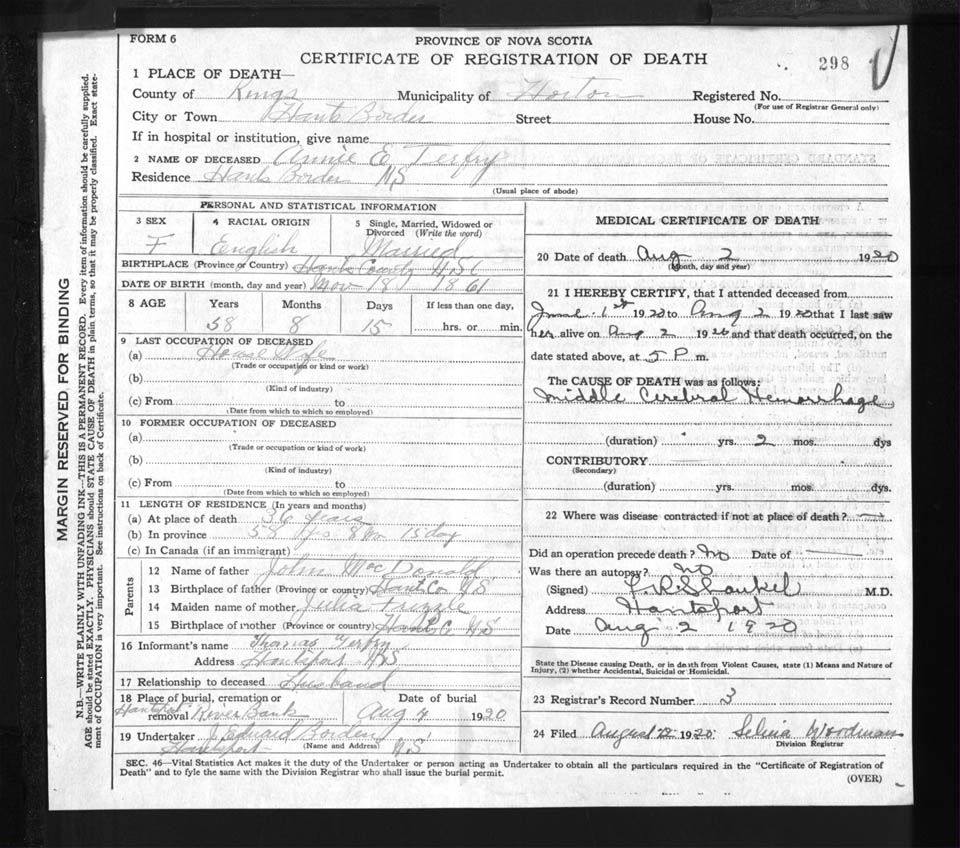 FORM 6
PROVINCE OF NOVA SCOTIA
CERTIFICATE OF REGISTRATION OF DEATH
298
1 PLACE OF DEATH—
County of Kings Municipality of Horton Registered No.
(For use of Registrar General only)
City or Town Hants Border Street House No.
If in hospital or institution, give name
2 NAME OF DECEASED Annie E Terfry
Residence Hants Border NS
(Usual place of abode)
PERSONAL AND STATISTICAL INFORMATION
3 SEX F
4 RACIAL ORIGIN English
5 Single, Married, Widowed or Divorced (Write the word) Married
BIRTHPLACE (Province or Country) Hants County NS
DATE OF BIRTH (month, day and year) Nov 18 1861
8 AGE Years Months Days If less than one day,
58 8 15 hrs. or min.
9 LAST OCCUPATION OF DECEASED
(a) House Wife
(Trade or occupation or kind or work)
(b)
(Kind of industry)
(c) From to
(Date from which to which so employed)
10 FORMER OCCUPATION OF DECEASED
(a)
(Trade or occupation or kind of work)
(b)
(Kind of industry)
(c) From to
(Date from which to which so employed)
11 LENGTH OF RESIDENCE (In years and months)
(a) At place of death 36 years
(b) In province 58 yrs 8 m 15 day
(c) In Canada (if an immigrant)
Parents
12 Name of father John MacDonald
13 Birthplace of father (Province or country) Hants Co NS
14 Maiden name of mother Julia
15 Birthplace of mother (Province or country) Hants C NS
16 Informant's name Thomas Terfry
Address Hantsport NS
17 Relationship to deceased Husband
18 Place of burial, cremation or removal Hantsport River Bank
Date of burial Aug 4 1920
19 Undertaker J Edward Borden
(Name and Address)
Hantsport NS
MEDICAL CERTIFICATE OF DEATH
20 Date of death Aug 2 1920
(Month, day and year)
21 I HEREBY CERTIFY, that I attended deceased from
June 1st 1920 to Aug 2 1920 that I last saw
her alive on Aug 2 1920 and that death occurred, on the
date stated above, at 5 P m.
The CAUSE OF DEATH was as follows:
Middle Cerebral Hemorrhage
(duration) yrs. 2 mos. dys
CONTRIBUTORY
(Secondary)
(duration) yrs. mos. dys.
22 Where was disease contracted if not at place of death? —
Did an operation precede death? No Date of —
Was there an autopsy? no
(Signed) Shankel M.D.
Address Hantsport
Date Aug 2 1920
State the Disease causing Death, or in death from Violent Causes, state (1) Means and Nature of
Injury, (2) whether Accidental, Suicidal or Homicidal.
23 Registrar's Record Number 3
24 Filed August 1920 Selina Woodman
Division Registrar
SEC. 46—Vital Statistics Act makes it the duty of the Undertaker or person acting as Undertaker to obtain all the particulars required in the "Certificate of Registration of
Death" and to fyle the same with the Division Registrar who shall issue the burial permit.
(OVER)
MARGIN RESERVED FOR BINDING
N.B.—WRITE PLAINLY WITH UNFADING INK—THIS IS A PERMANENT RECORD. Every item of information should be carefully supplied.
AGE should be stated EXACTLY. PHYSICIANS should STATE CAUSE OF DEATH in plain terms, so that it may be properly classified. Exact state-
ment of OCCUPATION is very important. See instructions on back of Certificate.